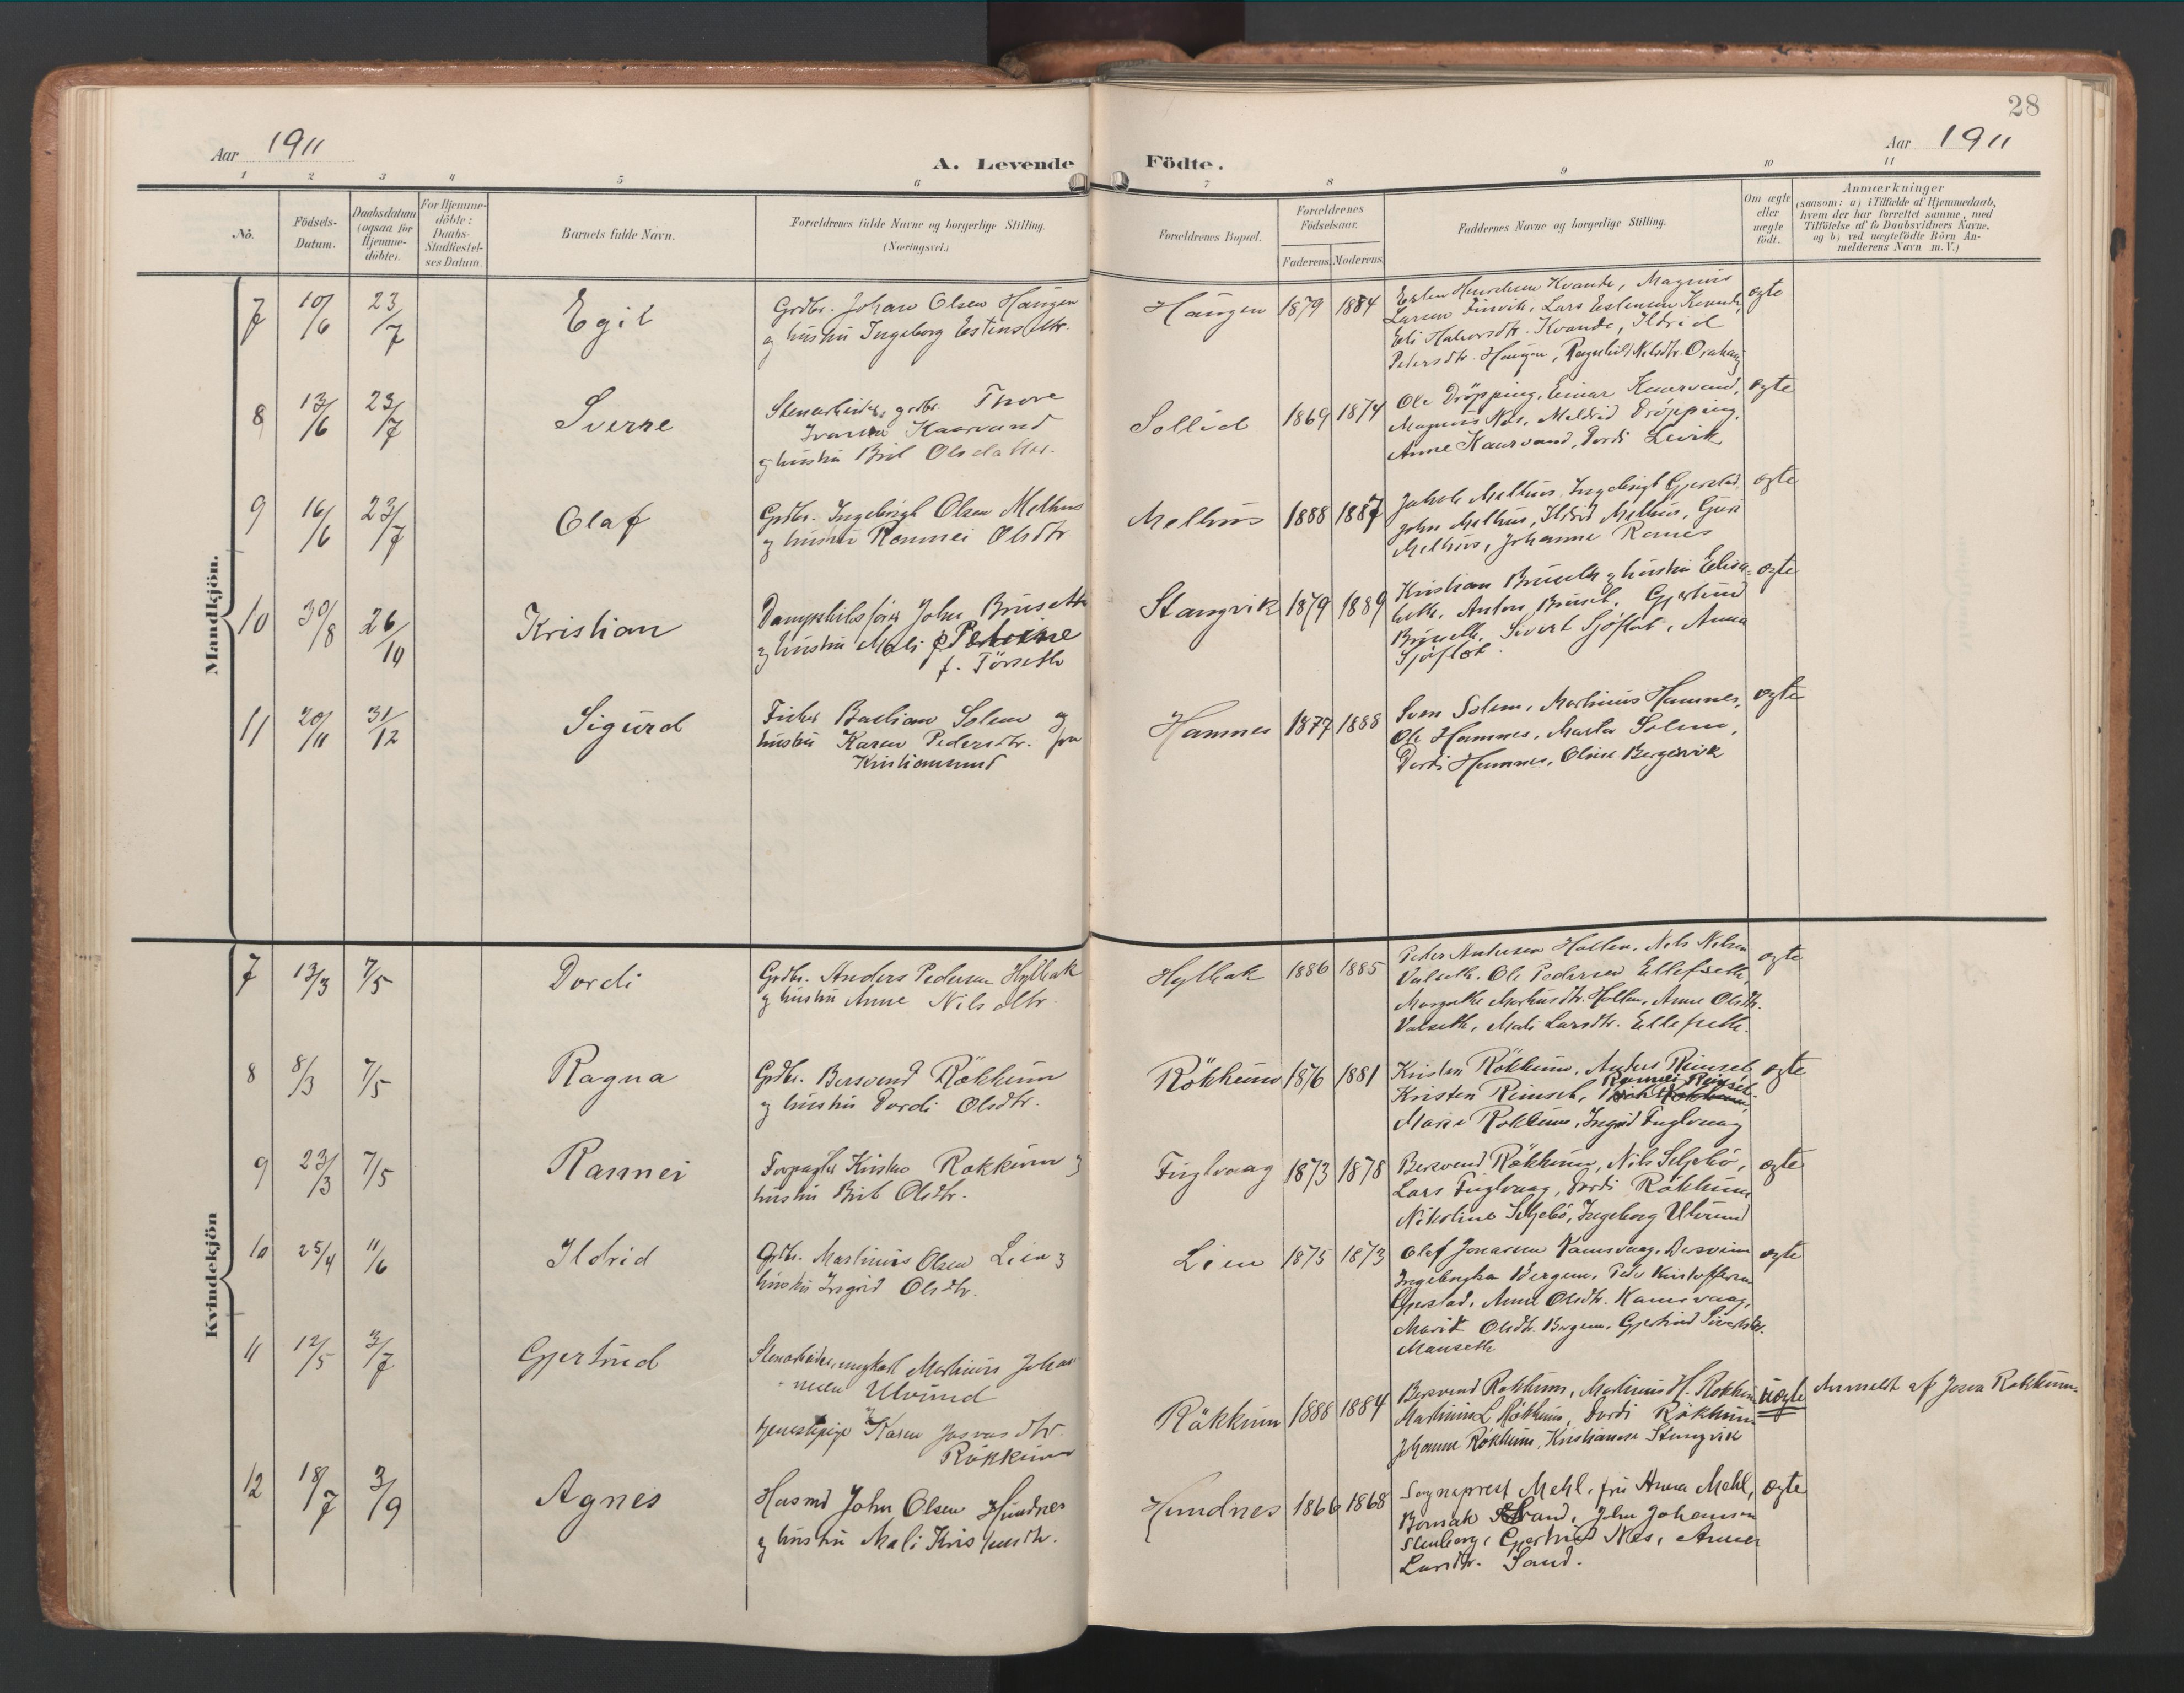 28
Aar 1911
A. Levende Födte.
Aar 1911
1 2 3 4 5 6 7 8 9 10 11
No.
Födsels-
Datum.
Daabsdatum
(ogsaa for
Hjemme-
döbte).
For Hjemme-
döbte:
Daabs-
Stadfæstel-
ses Datum.
Barnets fulde Navn.
Forældrenes fulde Navne og borgerlige Stilling.
(Næringsvei.)
Forældrenes Bopæl.
Forældrenes
Födselsaar.
Faderens. Moderens.
Faddernes Navne og borgerlige Stilling.
Om ægte
eller
uægte
födt.
Anmærkninger
(saasom: a) i Tilfælde af Hjemmedaab,
hvem der har forrettet samme, med
Tilföielse af to Daabsvidners Navne,
og b) ved uægtefödte Börn An-
melderens Navn m. V.)
Mandkjön.
7 10/6 23/7 Egil
Grdbr. Johan Olsen Haugen
og hustru Ingeborg Estensdtr.
Haugen 1879 1884
Kvande, Magnus
Larsen Finvik, Lars Estensen Kvande,
Eli Halvorsdtr. Kvande, Ildrid
Petersdtr. Haugen, Ragnhild Nilsdtr.
ægte
8 13/6 23/7 Sverre
Stenarbeider, grdbr. Thore
Kaarvand
og hustru Brit Olsdatter.
Sollid 1869 1874
Ole Dröpping, Einar Kaarvand,
Magnus Nes, Meldrid Dröpping,
Anne Kaarvand, Dordi Levik
ægte
9 16/6 23/7 Olaf
Grdbr. Ingebrigt Olsen Melhus
og hustru Rannei Olsdtr
Melhus 1888 1887
Jakob Melhus, Ingebrigt Gjerstad,
John Melhus, Ildrid Melhus, Guri
Melhus, Johanne Romes
ægte
10 30/8 26/10 Kristian
Dampskibsförer John Brusetth
og hustru Mali Petrine
f. Törseth
Stangvik 1879 1889
Kristian Bruseth og hustru Elisa-
beth, Anton Bruset, Gjertrud
Bruseth, Sivert Sjöflot, Anna
Sjöflot.
ægte
11 20/11 31/12 Sigurd
Fisker Bastian Solem og
hustru Karen Pedersdtr. fra
Kristiansund
Hamnes 1877 1888
Sven Solem, Martinus Hamnes,
Ole Hamnes, Marta Solem,
Dordi Hamnes, Oline Bergsvik
ægte
Kvindekjön
7 13/3 7/5 Dordi
Grdbr. Anders Pedersen Hylbak
og hustru Anne Nilsdtr.
Hylbak 1886 1885
Peder Andersen Hollen, Nils Nilsen
Valseth, Ole Pedersen Ellefseth,
Margrethe Markusdtr. Hollen, Anne Olsdtr.
Valseth, Mali Larsdtr. Ellefseth.
ægte
8 8/3 7/5 Ragna
Grdbr. Bersvend Rökkum
og hustru Dordi Olsdtr.
Rökkum 1876 1881
Kristen Rökkum, Anders Rinset,
Rannei Rinset
Kristen Rinset,
Marie Rökkum, Ingrid Fuglvaag
ægte
9 23/3 7/5 Rannei
Forpagter Kristen Rökkum og
hustru Brit Olsdtr.
Fuglvaag 1873 1878
Bersvend Rökkum, Nils Seljebö,
Lars Fuglvaag, Dordi Rökkum
Nikoline Seljebö, Ingeborg Ulvund
ægte
10 25/4 11/6 Ildrid
Grdbr. Martinus Olsen Lien og
hustru Ingrid Olsdtr.
Lien 1875 1873
Olaf Jonassen Kamsvaag,
Bergem, Peder Kristoffersen
Gjerstad, Anne Olsdtr. Kamsvaag,
Marit Olsdtr. Bergem, Gjertrud Sivertsdtr.
Mauseth
ægte
11 12/5 3/7 Gjertrud
Stenarbeider, ungkarl Martinus Johan-
nesen Ulvund
og
tjenestepige Karen Jonasdtr.
Rökkum
Rökkum 1888 1884
Bersvend Rökkum, Martinus H. Rökkum,
Martinus L. Rökkum, Dordi Rökkum
Johanne Rökkum, Kristianna Stangvik
uægte
Anmeldt af Jonas Rökkum.
12 18/7 3/9 Agnes
Husmd John Olsen Hundnes
og hustru Mali Kristensdtr.
Hundnes 1866 1868
Sogneprest Mehl, fru Anna Mehl,
Strand, John Johansen
Stenberg, Gjertrud Nes, Anne
Larsdtr. Sand.
ægte